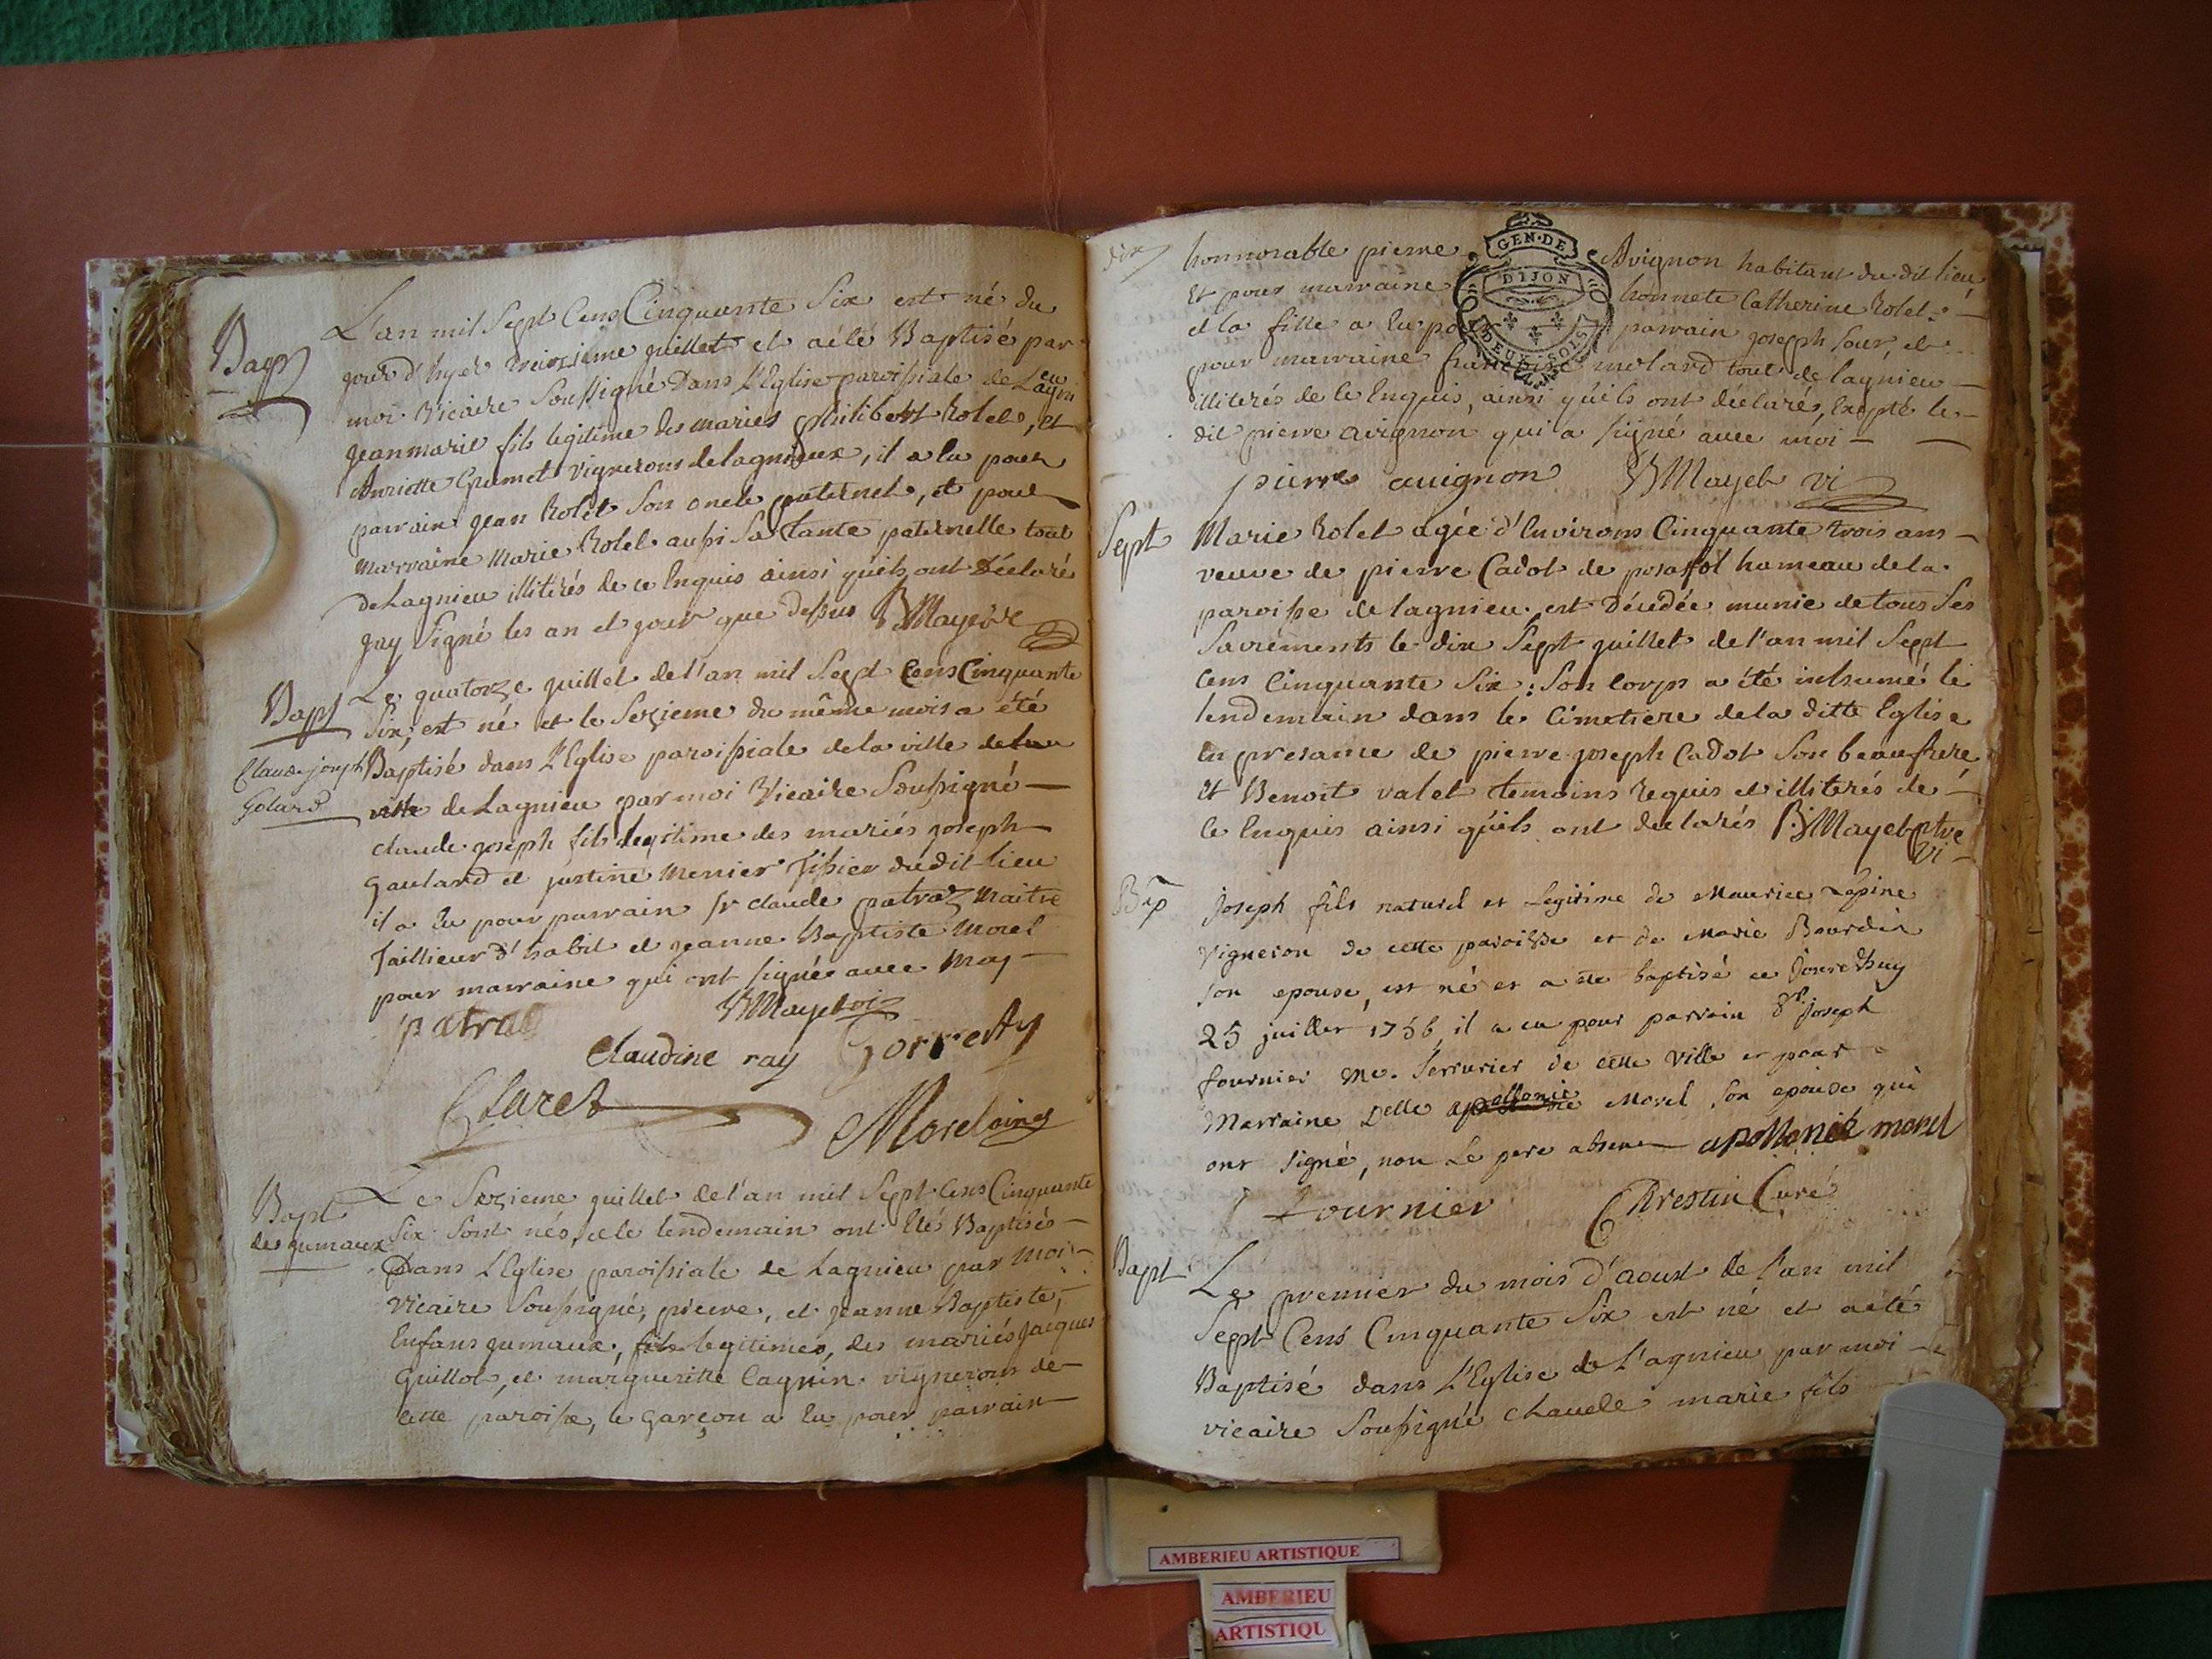 Bapt
L'an mil Sept Cens Cinquante Six est né du
jour d'hyér treizieme juillet et aété Baptisé par
moi Vicaire Soussigné Dans L'Eglise paroissiale de Lagnieu
jeanmarie fils legitime des mariés philibert Rolet, et
Anriette Grumet vignerons delagnieux, il a eu pour
parrain jean Rolet Son oncle paternel, et pour
marraine Marie Rolet aussi Sa tante paternelle tout
deLagnieu illitérés de ce Enquis ainsi qu'ils ont Déclaré
jay Signé les an et jour que dessus B Mayet
Bapt
Claude joseph
Golard
Le quatorze juillet de l'an mil Sept Cens Cinquante
Six, est né et le Sezieme du même mois a été
Baptisé dans L'Eglise paroissiale dela ville de la
ville de Lagnieu par moi Vicaire Soussigné
claude joseph fils legitime des mariés joseph
Gaulard et justine Menier Tissier du dit lieu
il a eu pour parrain sr claude patraz Maitre
Taillieur d'habit et jeanne Baptiste Morel
pour marraine qui ont signés avec moy
B Mayet vi
patral
Claudine ray Gorretty
Claret
Morel
Bapt
des jumaux
Le Sezieme juillet de l'an mil Sept Cens Cinquante
Six Sont nés, et le lendemain ont été Baptisés
Dans L'Eglise paroissiale de Lagnieu par moi
vicaire Soussigné, pierre, et jeanne Baptiste,
Enfans jumaux, fils legitimes, des mariés jacques
Guillot, et margueritte Cagnin vignerons de
cette paroisse, le garçon a eu pour parrain
dix
honnorable pierre Avignon habitant du dit lieu
Et pour marraine honnete Catherine Rolet
et la fille a eu po parrain joseph Sour, et
pour marraine francoise molard tout de lagnieu
illiterés de ce Enquis, ainsi qu'ils ont déclarés, Excepté le
dit pierre avignon qui a signé avec moi
GEN·DE
DIJON
DEUX·SOLS
pierre avignon B Mayet vi
Sept
Marie Rolet agée d'Environs Cinquante trois ans
veuve de pierre Cadot de posafol hameau dela
paroisse de lagnieu est Décedée munie de tous Ses
Sacréments le dix Sept juillet de l'an mil Sept
Cens Cinquante Six: Son Corps a été inhumé le
lendemain dans le Cimetiere dela ditte Eglise
en presance de pierre joseph Cadot Son beaufrere
Et Benoit valet temoins Requis et illiterés de
ce Enquis ainsi qu'ils ont déclarés B Mayet ptre
vi
Bap
Joseph fils naturel et Legitime de Maurice Lepine
Vigneron de cette paroisse et de Marie Bourdin
son epouse, est né et a été baptisé ce jourdhuy
25 juillet 1756, il a eu pour parrain Sr. Joseph
fournier Me. Serrurier de cette ville et pour
Marraine Delle apollonie Morel son epouse qui
ont signé, non le pere absent apollonie morel
fournier Chrestin Curé
Bapt
Le premier du mois d'aoust de l'an mil
Sept Cens Cinquante Six est né et aété
Baptisé dans L'Eglise de L'agnieu par moi
vicaire Soussigné Claude marie fils
AMBERIEU ARTISTIQUE
AMBERIEU
ARTISTIQU